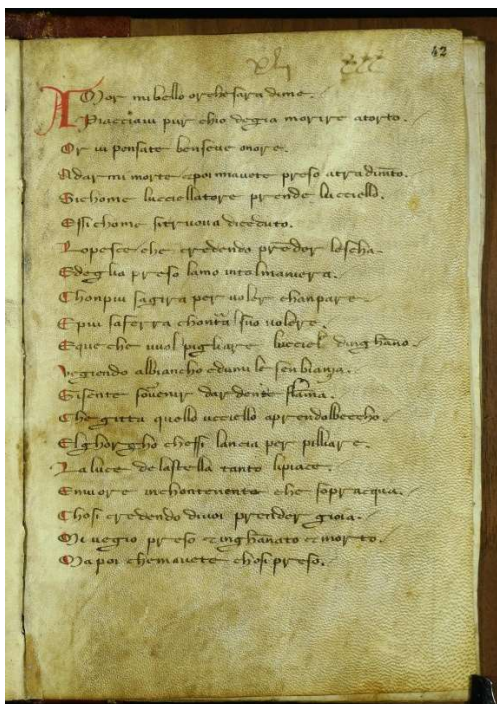 xlj
42
AMor mi bello or che sara dime.
Piacciaui pur chio degia morire atorto.
Or ui pensate benseue onore.
Adar mi morte epoi mauete preso
Sichome lucciellatore prende lucciello.
Essi chome sitruoua diceduto.
Lopescie che credendo prender lescha.
Edeglia preso lamo
Chonpiu sagira per uoler chanpare.
Epiu saferra chontra suo uolere.
Eque che uuol pigliare lucciel dinghano.
Vegiendo albiancho edumile senbianza.
Esisente souenir dardente fiama.
Chegitta quello ucciello aprendolbeccho.
Elghorgho chessi lancia per pilliare.
La luce delastella tanto lipiace.
Emuore inchontenente che sopracqua.
Chosi credendo diuoi prender gioia.
Mi uegio preso einghanato emorto.
Ma poi chemauete chosi preso.